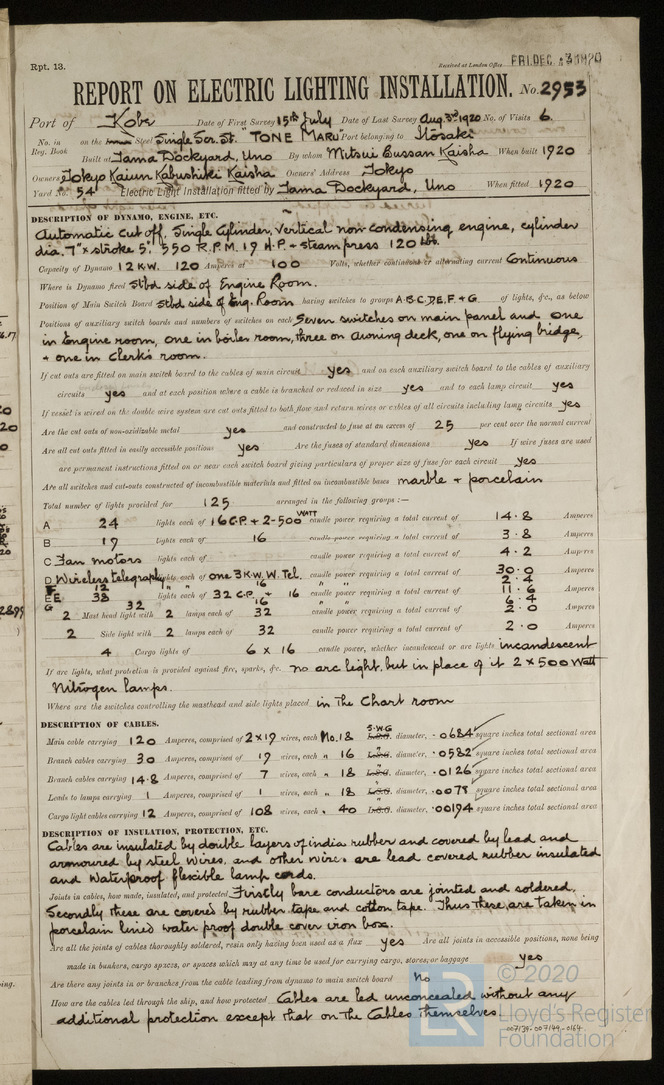 Rpt. 13.
Received at London Office FRI. DEC. 3 1920
REPORT ON ELECTRIC LIGHTING INSTALLATION. No. 2953
Port of Kobe Date of First Survey 15th July Date of Last Survey Aug. 3rd 1920 No. of Visits 6.
No. in Reg. Book on the Steel Single Scr. St. "TONE MARU" Port belonging to Itosaki
Built at Tama Dockyard, Uno By whom Mitsui Bussan Kaisha When built 1920
Owners Tokyo Kaiun Kabushiki Kaisha Owners' Address Tokyo
Yard No. 54 Electric Light Installation fitted by Tama Dockyard, Uno When fitted 1920
DESCRIPTION OF DYNAMO, ENGINE, ETC.
Automatic Cut off, Single Cylinder, Vertical non-condensing engine, cylinder
dia. 7" x stroke 5". 550 R.P.M. 19 H.P. + steam press 120 lbs.
Capacity of Dynamo 12 K.W. 120 Amperes at 100 Volts, whether continuous or alternating current Continuous
Where is Dynamo fixed Stbd side of Engine Room.
Position of Main Switch Board Stbd side of Eng. Room having switches to groups A.B.C.D.E.F + G of lights, &c., as below
Positions of auxiliary switch boards and numbers of switches on each Seven switches on main panel and one
in Engine room, one in boiler room, three on awning deck, one on flying bridge,
+ one in Clerk's room.
If cut outs are fitted on main switch board to the cables of main circuit yes and on each auxiliary switch board to the cables of auxiliary
circuits yes and at each position where a cable is branched or reduced in size yes and to each lamp circuit yes
If vessel is wired on the double wire system are cut outs fitted to both flow and return wires or cables of all circuits including lamp circuits yes
Are the cut outs of non-oxidizable metal yes and constructed to fuse at an excess of 25 per cent over the normal current
Are all cut outs fitted in easily accessible positions yes Are the fuses of standard dimensions yes If wire fuses are used
are permanent instructions fitted on or near each switch board giving particulars of proper size of fuse for each circuit yes
Are all switches and cut-outs constructed of incombustible materials and fitted on incombustible bases marble + porcelain
Total number of lights provided for 125 arranged in the following groups :—
A 24 lights each of 16 C.P. + 2-500 WATT candle power requiring a total current of 14.8 Amperes
B 19 lights each of 16 candle power requiring a total current of 3.8 Amperes
C Fan motors lights each of candle power requiring a total current of 4.2 Amperes
D Wireless telegraphy lights each of one 3 K.W. W. Tel. candle power requiring a total current of 30.0 Amperes
F 12 " " 16 " " 2.4
E 38 lights each of 32 C.P. + 16 candle power requiring a total current of 11.6 Amperes
G 32 16 " " 6.4
2 Mast head light with 2 lamps each of 32 candle power requiring a total current of 2.0 Amperes
2 Side light with 2 lamps each of 32 candle power requiring a total current of 2.0 Amperes
4 Cargo lights of 6 x 16 candle power, whether incandescent or arc lights incandescent
If arc lights, what protection is provided against fire, sparks, &c. no arc light, but in place of it 2 x 500 Watt
Nitrogen lamps.
Where are the switches controlling the masthead and side lights placed in the Chart room
DESCRIPTION OF CABLES.
Main cable carrying 120 Amperes, comprised of 2 x 19 wires, each No. 18 S.W.G. L.S.G. diameter, .0684 square inches total sectional area
Branch cables carrying 30 Amperes, comprised of 19 wires, each " 16 L.S.G. diameter, .0582 square inches total sectional area
Branch cables carrying 14.8 Amperes, comprised of 7 wires, each " 18 L.S.G. diameter, .0126 square inches total sectional area
Leads to lamps carrying 1 Amperes, comprised of 1 wires, each " 18 L.S.G. diameter, .0078 square inches total sectional area
Cargo light cables carrying 12 Amperes, comprised of 108 wires, each " 40 L.S.G. diameter, .00194 square inches total sectional area
DESCRIPTION OF INSULATION, PROTECTION, ETC.
Cables are insulated by double layers of india rubber and covered by lead and
armoured by steel wires, and other wires are lead covered rubber insulated
and waterproof flexible lamp cords.
Joints in cables, how made, insulated, and protected Firstly bare conductors are jointed and soldered.
Secondly these are covered by rubber tape and cotton tape. Thus these are taken in
porcelain lined water proof double cover iron box.
Are all the joints of cables thoroughly soldered, resin only having been used as a flux yes Are all joints in accessible positions, none being
made in bunkers, cargo spaces, or spaces which may at any time be used for carrying cargo, stores, or baggage yes
Are there any joints in or branches from the cable leading from dynamo to main switch board no
How are the cables led through the ship, and how protected Cables are led unconcealed without any
additional protection except that on the Cables themselves.
© 2020
Lloyd's Register
Foundation
007139-007149-0164